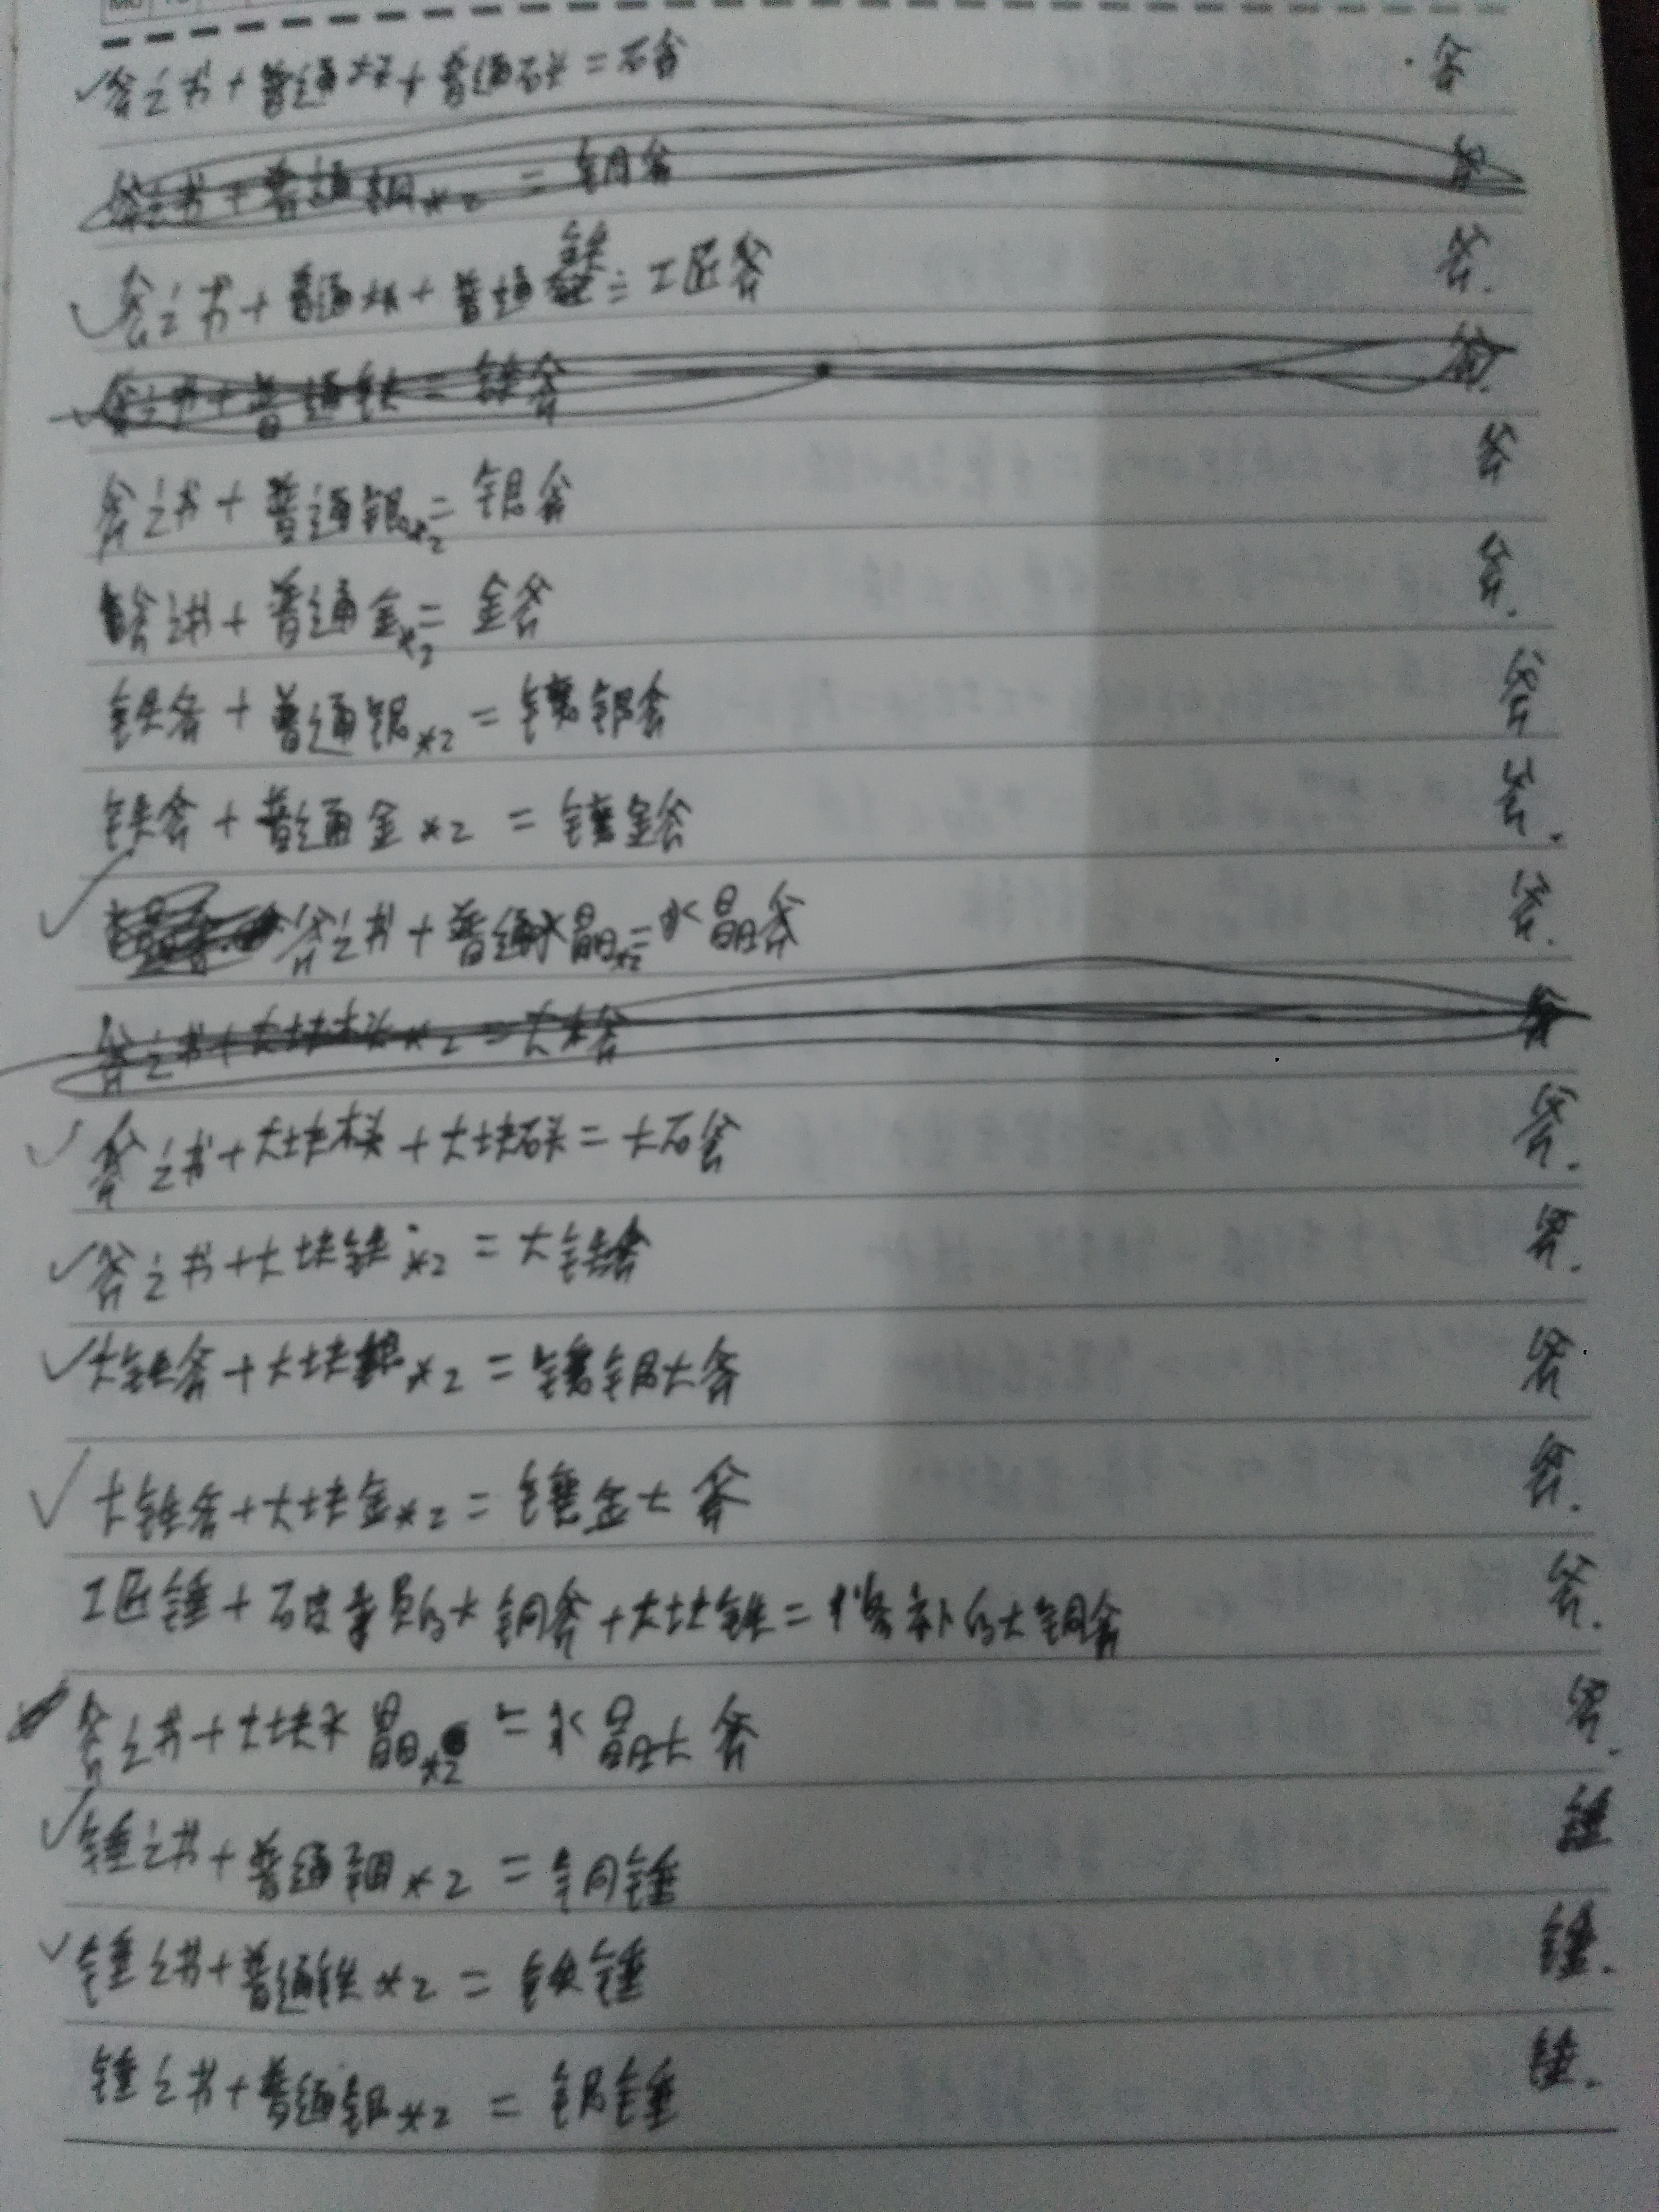 ✓斧之书+普通木头+普通石头=石斧 斧
斧之书+普通铜*2=铜斧 斧
✓斧之书+普通木+普通铁=工匠斧 斧.
斧之书+普通铁=铁斧 斧.
斧之书+普通银*2=银斧 斧
斧之书+普通金*2=金斧 斧.
铁斧+普通银*2=镶银斧 斧
铁斧+普通金*2=镶金斧 斧.
✓斧之书+普通水晶*2=水晶斧 斧.
斧之书+大块木头*2=大木斧 斧
✓斧之书+大块木头+大块石头=大石斧 斧.
✓斧之书+大块铁*2=大铁斧 斧.
✓大铁斧+大块银*2=镶银大斧 斧
✓大铁斧+大块金*2=镶金大斧 斧.
工匠锤+破损的大铜斧+大块铁=修补的大铜斧 斧.
斧之书+大块水晶*2=水晶大斧 斧.
✓锤之书+普通铜*2=铜锤 锤
✓锤之书+普通铁*2=铁锤 锤.
锤之书+普通银*2=银锤 锤.